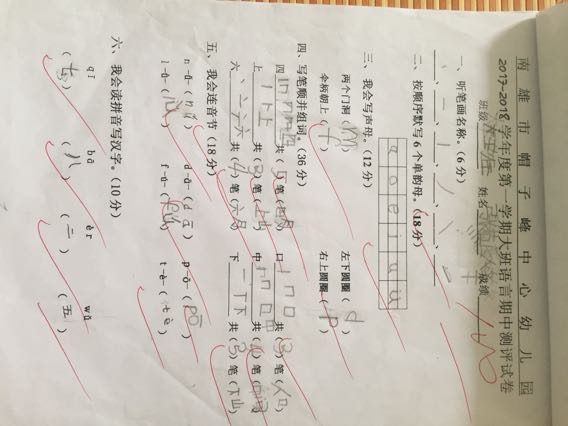 南雄市帽子峰中心幼儿园
2017-2018学年度第一学期大班语言期中测评试卷
班级 姓名 成绩
一、听笔画名称。(6分)
二、按顺序默写6个单韵母。(18分)
a o e i u ü
三、我会写声母。(12分)
两个门洞(m) 左下圆圈(d)
伞柄朝上(t) 右上圆圈(p)
四、写笔顺并组词。(36分)
四 共(5)笔(四月) 口 共(3)笔(人口)
上 共(3)笔(上山) 中 共(4)笔(中国)
六 共(4)笔(六月) 下 共(3)笔(下山)
五、我会连音节(18分)
n-ǎ-( d-ā-( p-ō-(pō)
l-ā-( f-ā-( t-è-(tè)
六、我会读拼音写汉字。(10分)
qī bā èr wǔ
(七) (八) (二) (五)